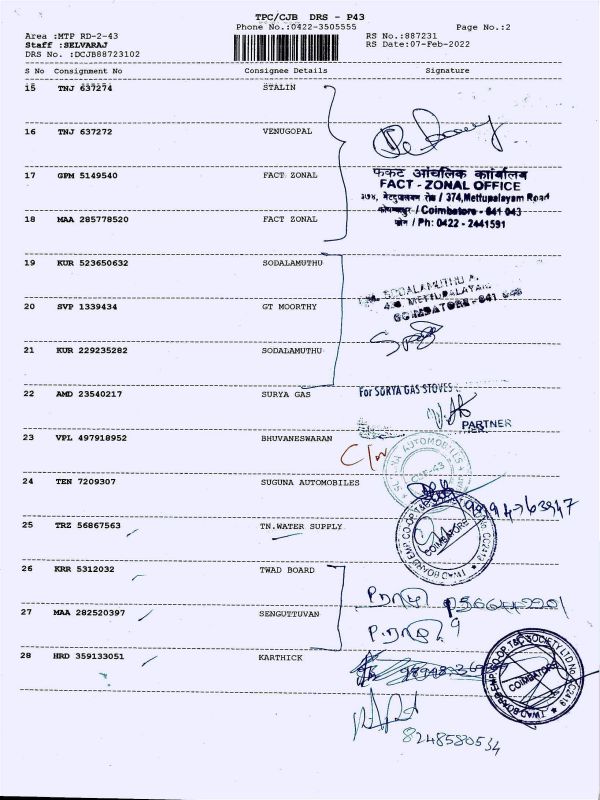 TPC/CJB DRS - P43
Phone No.:0422-3505555 Page No.:2
Area :MTP RD-2-43 RS No.:887231
Staff :SELVARAJ RS Date:07-Feb-2022
DRS No. :DCJB88723102
S No Consignment No Consignee Details Signature
15 TNJ 637274 STALIN
16 TNJ 637272 VENUGOPAL
17 GPM 5149540 FACT ZONAL
फैक्ट आंचलिक कार्यालय
FACT - ZONAL OFFICE
३७४, मेट्टुपालयम रोड / 374,Mettupalayam Road
कोयम्बत्तूर / Coimbatore - 641 043
फोन / Ph: 0422 - 2441591
18 MAA 285778520 FACT ZONAL
19 KUR 523650632 SODALAMUTHU
SODALAMUTHU A.
METTUPALAYAM
COIMBATORE-641 043
20 SVP 1339434 GT MOORTHY
21 KUR 229235282 SODALAMUTHU
22 AMD 23540217 SURYA GAS
For SURYA GAS STOVES
PARTNER
23 VPL 497918952 BHUVANESWARAN
24 TEN 7209307 SUGUNA AUTOMOBILES
SUGUNA AUTOMOBILES
CBE-43
9994763947
25 TRZ 56867563 TN.WATER SUPPLY
TWAD BOARD EMP CO-OP T&C SOCIETY LTD No. CC2413
COIMBATORE
26 KRR 5312032 TWAD BOARD
27 MAA 282520397 SENGUTTUVAN
28 HRD 359133051 KARTHICK
TWAD BOARD EMP CO-OP T&C SOCIETY LTD No. CC2413
COIMBATORE
8248580534